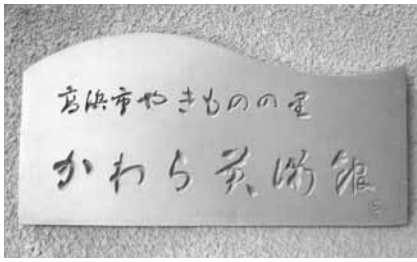 高浜市やきものの里
かわら美術館